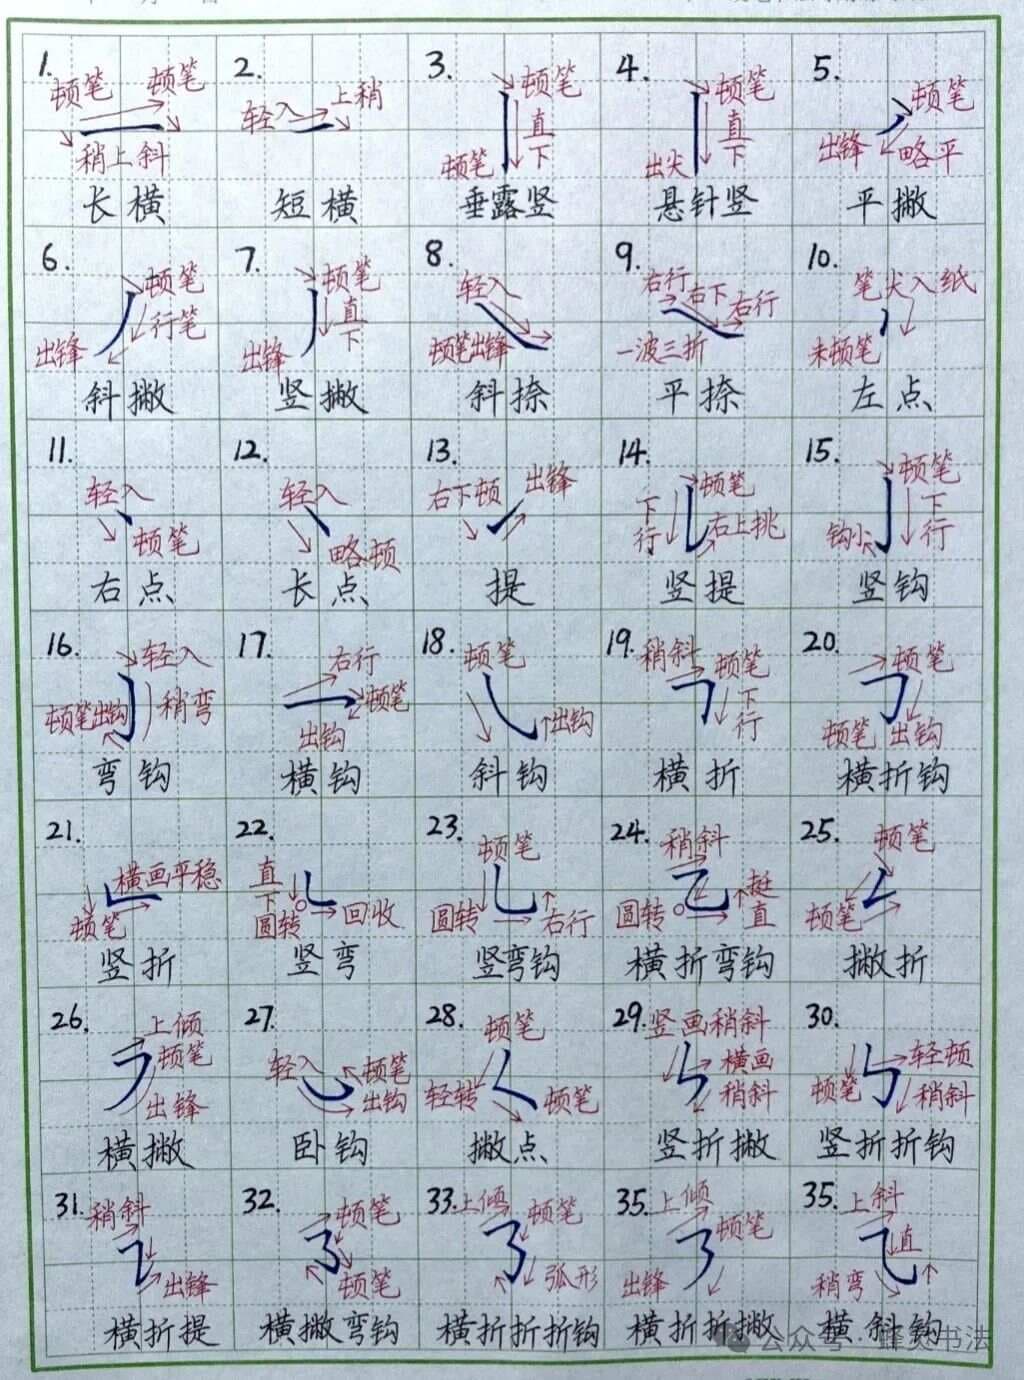 1.
顿笔 顿笔
稍上斜
长横
2.
轻入 上稍
短横
3.
顿笔
直下
顿笔
垂露竖
4.
顿笔
直下
出尖
悬针竖
5.
顿笔
出锋 略平
平撇
6.
顿笔
行笔
出锋
斜撇
7.
顿笔
直下
出锋
竖撇
8.
轻入
顿笔出锋
斜捺
9.
右行 右下 右行
一波三折
平捺
10.
笔尖入纸
未顿笔
左点
11.
轻入
顿笔
右点
12.
轻入
略顿
长点
13.
右下顿 出锋
提
14.
顿笔
下行 右上挑
竖提
15.
顿笔
下行
钩小
竖钩
16.
轻入
顿笔出钩 稍弯
弯钩
17.
右行
顿笔
出钩
横钩
18.
顿笔
出钩
斜钩
19.
稍斜 顿笔
下行
横折
20.
顿笔
顿笔 出钩
横折钩
21.
横画平稳
顿笔
竖折
22.
直下
圆转 回收
竖弯
23.
顿笔
圆转 右行
竖弯钩
24.
稍斜
圆转 挺直
横折弯钩
25.
顿笔
顿笔
撇折
26.
上倾
顿笔
出锋
横撇
27.
轻入 顿笔
出钩
卧钩
28.
顿笔
轻转 顿笔
撇点
29.
竖画稍斜
横画
稍斜
竖折撇
30.
轻顿
顿笔 稍斜
竖折折钩
31.
稍斜
出锋
横折提
32.
顿笔
顿笔
横撇弯钩
33.
上倾 顿笔
弧形
横折折折钩
35.
上倾
顿笔
出锋
横折折撇
35.
上斜
直
稍弯
横斜钩